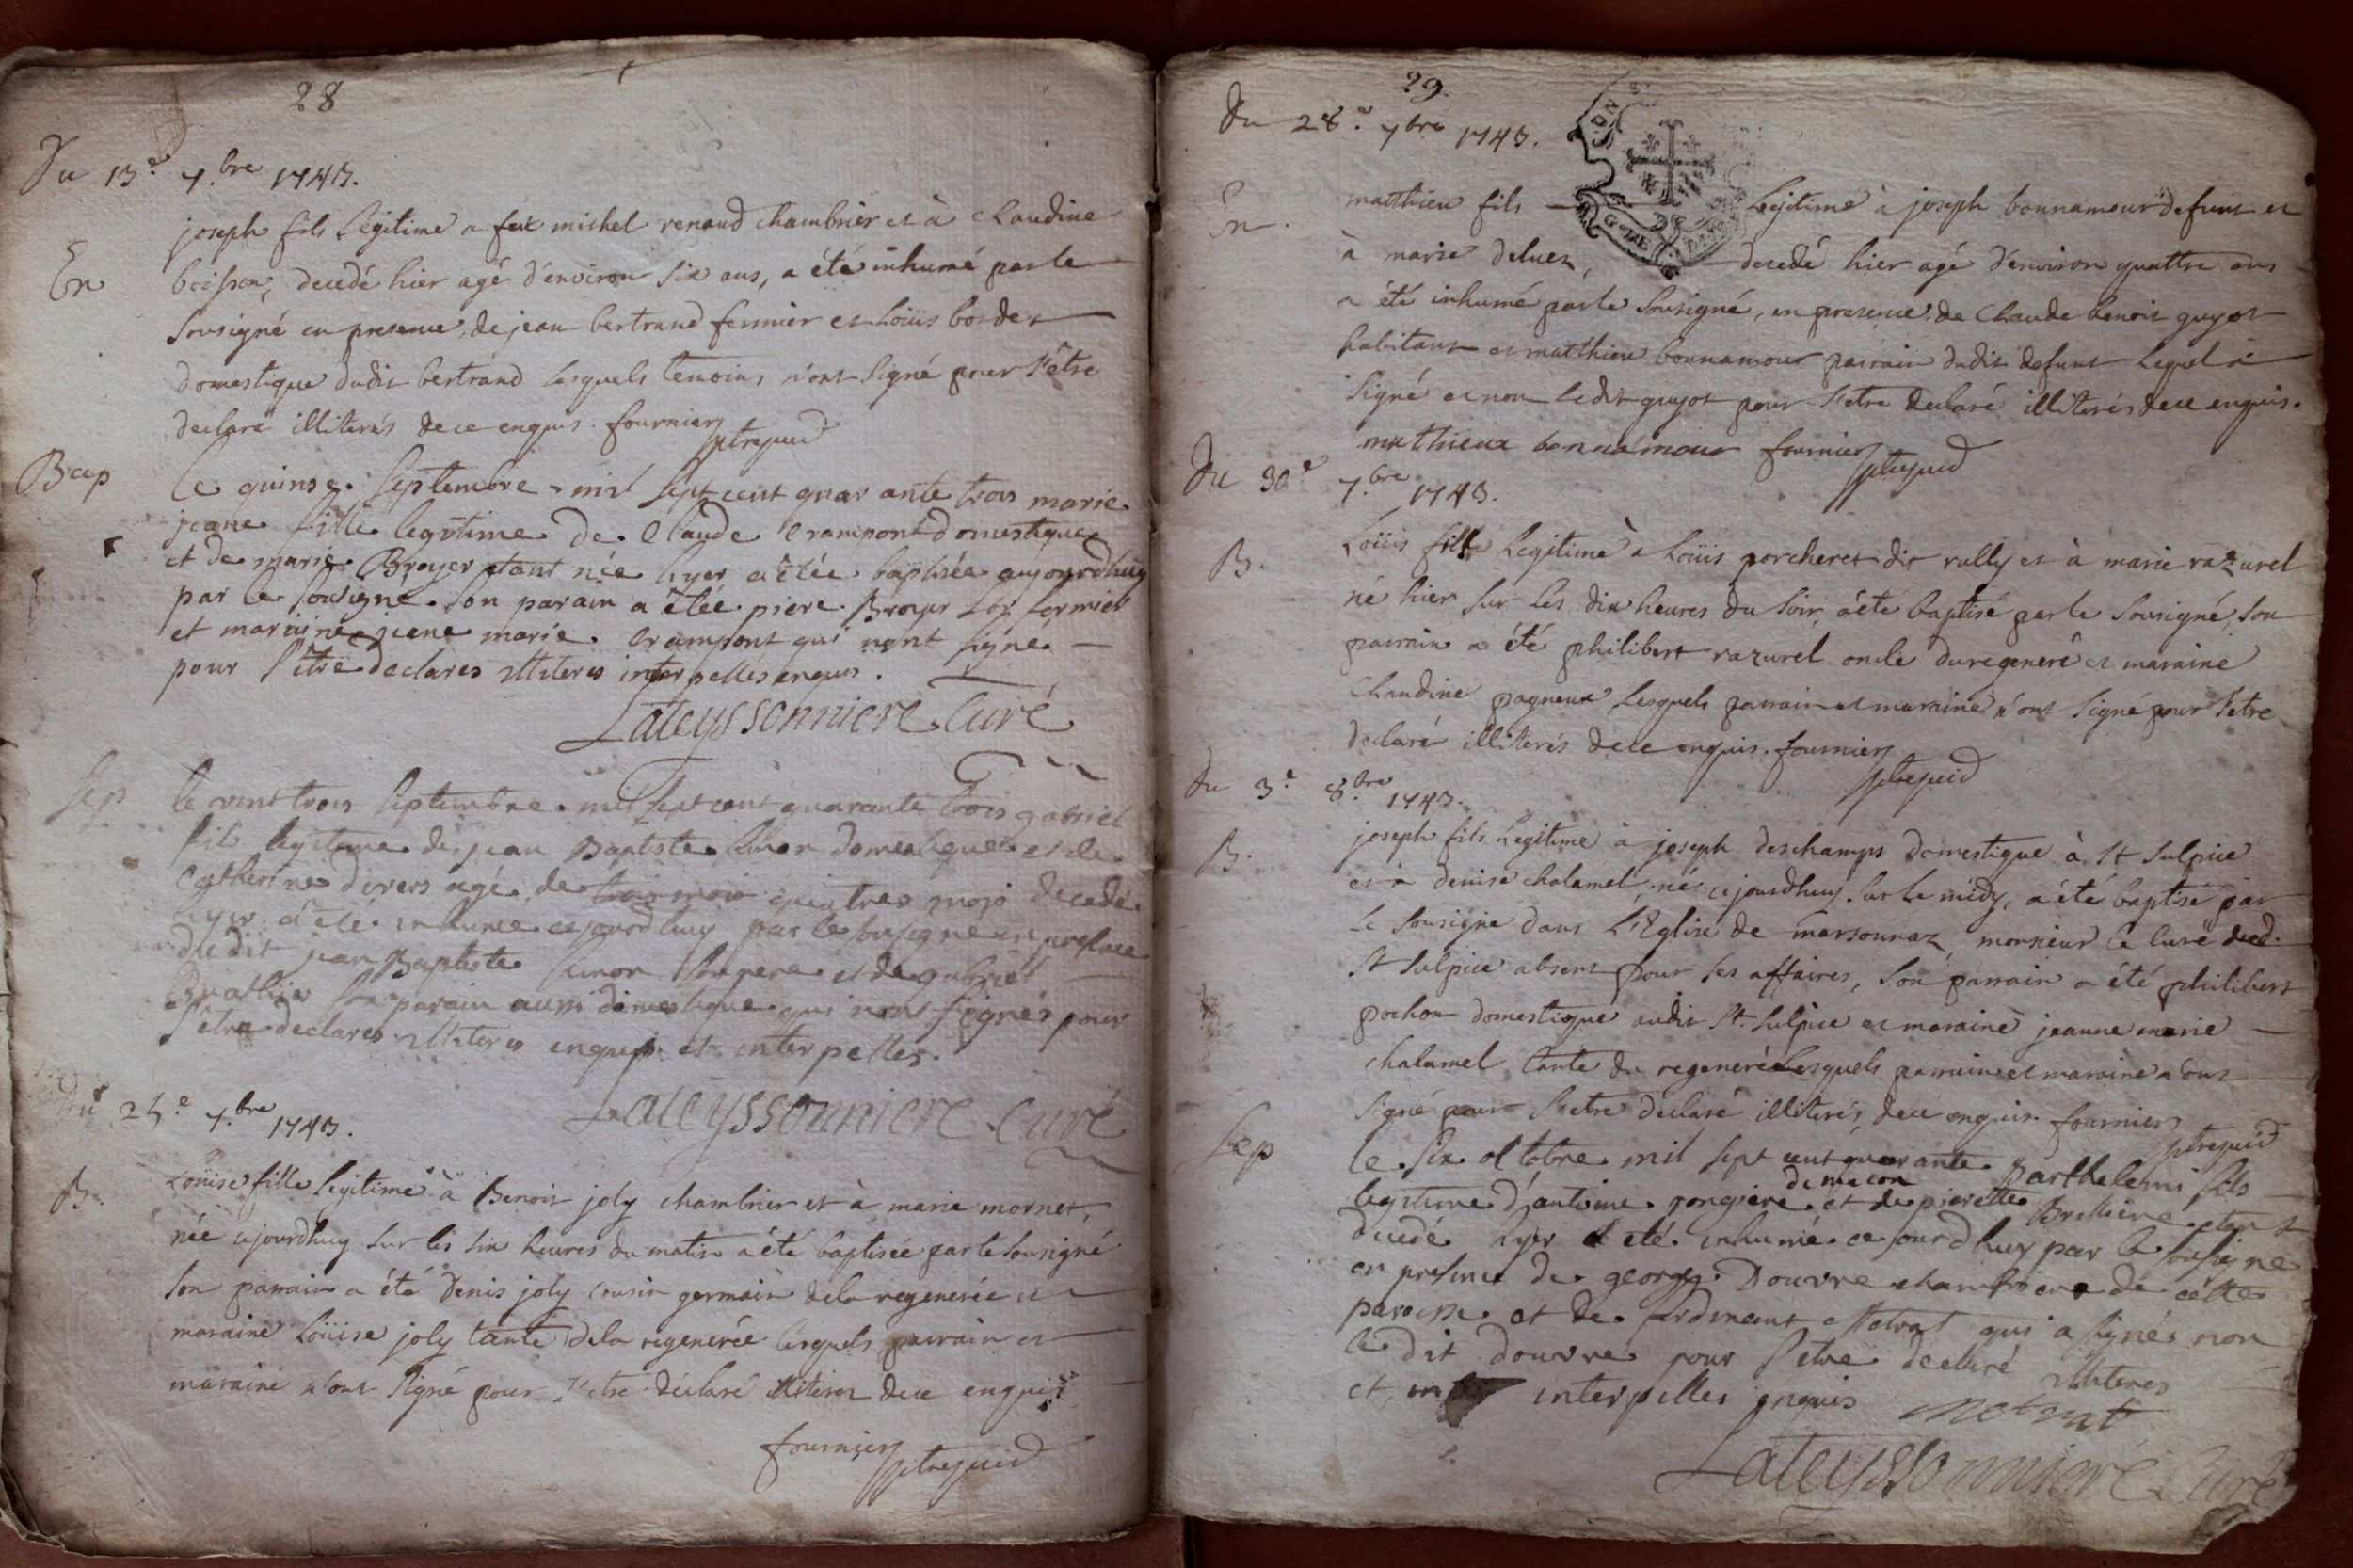 28
Du 13.e 7.bre 1743.
joseph fils Legitime a feu michel renaud chambrier et à Claudine
En
boisson, decedé hier agé d'environ six ans, a été inhumé par le
sousigné en presence de jean bertrand fermier et Loüis bordet
domestique dudit bertrand lesquels temoins n'ont signé pour s'être
declaré illiterés de ce enquis. fournier ptre
Bap
le quinse septembre mil sept cent quarante trois marie
jeane fille legitime de Claude Crampont domestique
et de marie Broyer etant née hyer a étée baptisée aujourdhuy
par le sousigné son parain a étée piere Broyer fermier
et maraine jeane marie Crampont qui n'ont signe
pour s'être declares illiteres interpelles enquis.
Lateyssonniere Curé
Sep
le vint trois septembre mil sept cent quarante trois gabriel
fils legitime de jean Baptiste domestique et de
Catherine agé de trois mois quatres mois decedé
hyer a été inhumé cejourdhuy par le sousigne en presence
dudit jean Baptiste son pere et de gabriel
son parain aussi domestique qui n'ont signés pour
s'être declares illiteres enquis et interpelles.
Lateyssonniere Curé
Du 25.e 7.bre 1743.
B.
Loüise fille legitime à Benoit joly chambrier et à marie mornet,
née cejourdhuy sur les six heures du matin a été baptisée par le sousigné
son parrain a été Denis joly cousin germain de la regenerée et
maraine Loüise joly tante de la regenerée lesquels parrain et
maraine n'ont signé pour s'etre declaré illiteres de ce enquis
fournier ptre
29.
Du 28.e 7bre 1743.
En.
matthieu fils Legitime à joseph bonnamour defunt et
à marie deluez, decedé hier agé d'environ quattre ans
a été inhumé par le sousigné, en presence de Claude benoit guyot
habitant et matthieu bonnamour parrain dudit defunt lequel a
signé et non ledit guyot pour s'etre declaré illiterés de ce enquis.
matthieux bonnamour fournier ptre
Du 30.e 7.bre 1743.
B.
Loüis fils Legitime a Loüis porcheret dit rully et à marie razurel
né hier sur les dix heures du soir, a été baptisé par le sousigné, son
parrain a été philibert razurel oncle du regeneré et maraine
Claudine pagneux lesquels parrain et maraine n'ont signé pour s'etre
declaré illiterés de ce enquis. fournier ptre
Du 3.e 8.bre 1743.
B.
joseph fils Legitime à joseph deschamps domestique à St Sulpice
et à denise chalamel, né cejourdhuy sur le midy, a été baptisé par
le sousigné dans L'Eglise de marsonnaz monsieur le Curé dud.
St Sulpice absent pour ses affaires, son parrain a été philibert
pochon domestique audit St. Sulpice et maraine jeanne marie
chalamel tante du regeneré lesquels parrain et maraine n'ont
signé pour s'etre declaré illiterés, de ce enquis. fournier ptre
Sep
le six octobre mil sept cent quarante Barthelemi fils
de macon
legitime d'antoine rongiere et de pierette Brelliere etant
decedé hyer a eté inhumé ce jourdhuy par le sousigné
en presence de george Douvre chambrier de cette
paroisse et de ferdinant Motrat qui a signés non
le dit douvre pour s'etre declaré illiteres
et interpelles enquis Motrat
Lateyssonniere Curé